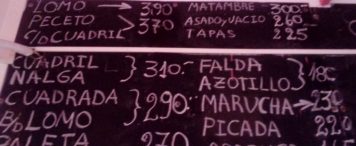 LOMO → 390-
PECETO
C/D CUADRIL > 370
MATAMBRE 300-
ASADO y VACIO 260
TAPAS 225
CUADRIL
NALGA } 310-
CUADRADA
B/D LOMO } 290-
PALETA 270
FALDA
AZOTILLO } 180
MARUCHA → 230
PICADA 220